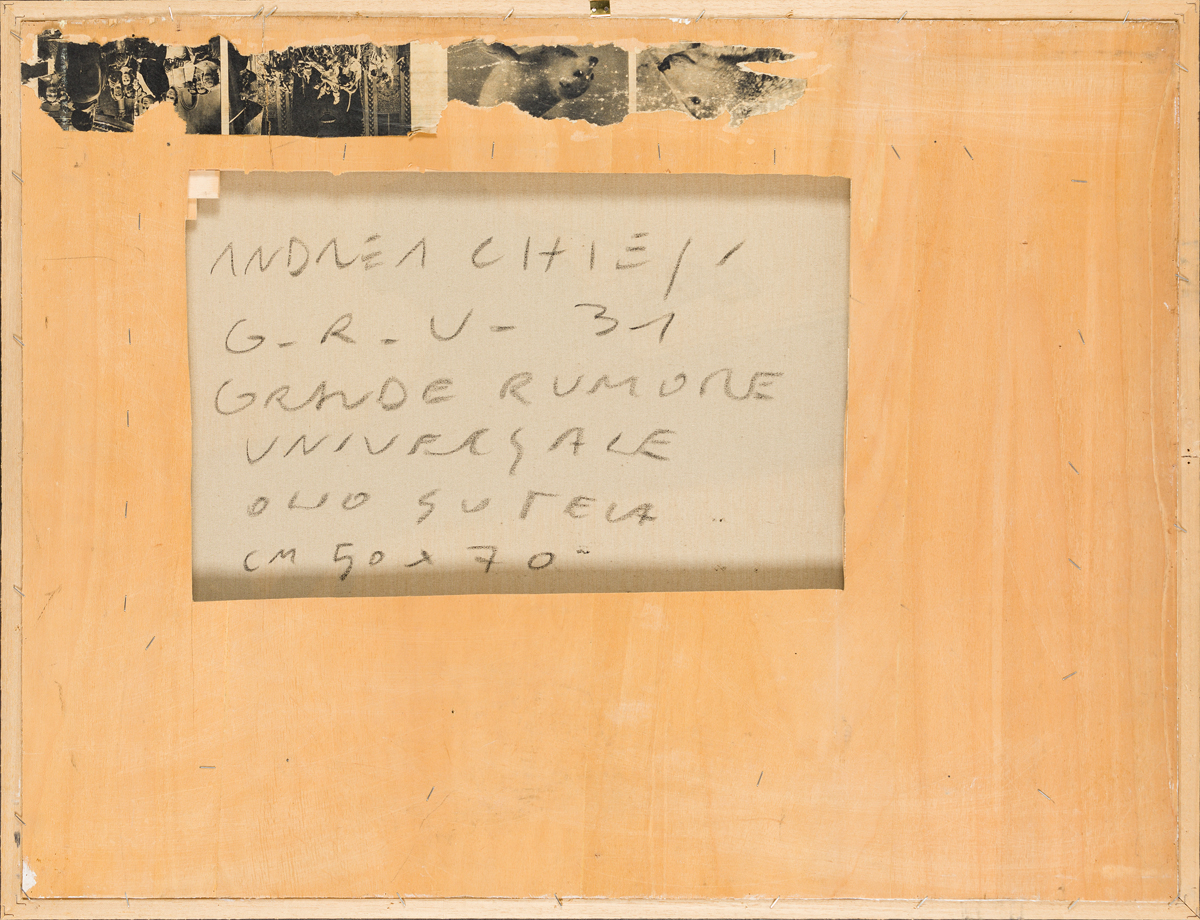 ANDREA CHIESI
G.R.U- 31
GRANDE RUMORE
UNIVERSALE
OLIO SU TELA
CM 50 x 70